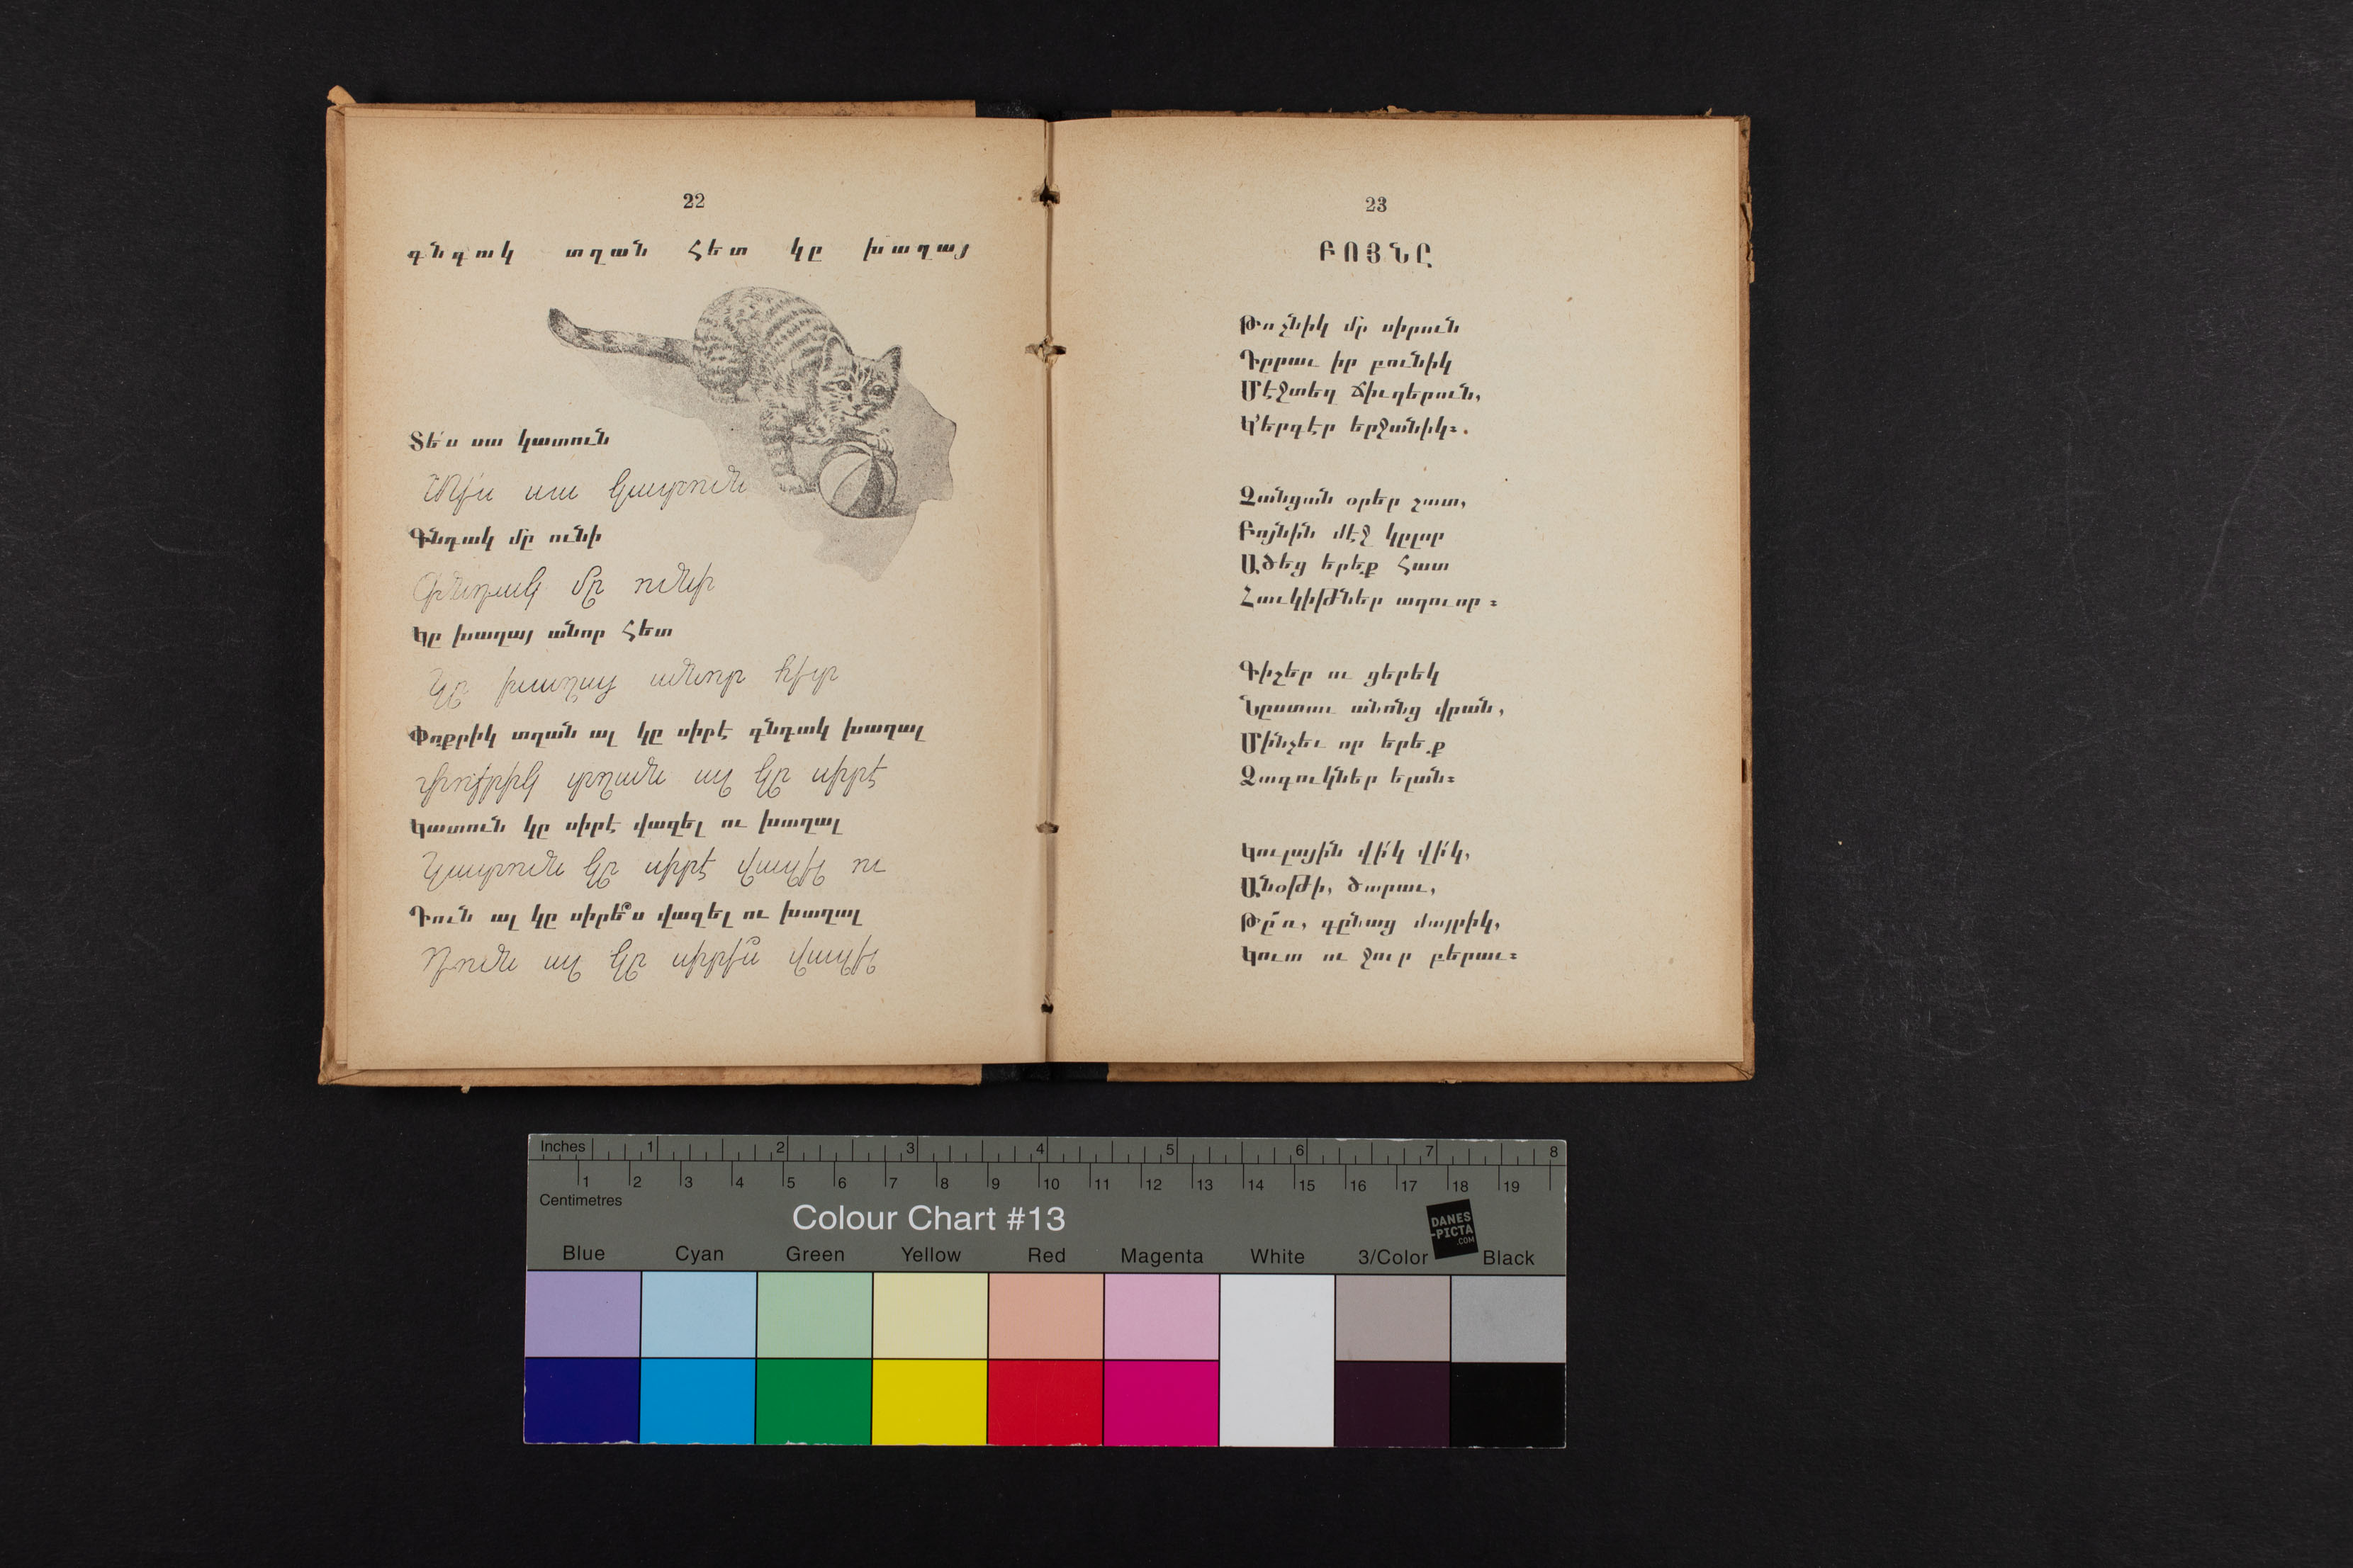 22
գնդակ տղան հետ կը խաղայ
Տե՛ս սա կատուն
Տե՛ս սա կատուն
Գնդակ մը ունի
Գնդակ մը ունի
Կը խաղայ անոր հետ
Կը խաղայ անոր հետ
Փոքրիկ տղան ալ կը սիրէ գնդակ խաղալ
Փոքրիկ տղան ալ կը սիրէ
Կատուն կը սիրէ վազել ու խաղալ
Կատուն կը սիրէ վազել ու
Դուն ալ կը սիրե՞ս վազել ու խաղալ
Դուն ալ կը սիրե՞ս վազել
23
ԲՈՅՆԸ
Թռչնիկ մը սիրուն
Դըրաւ իր բունիկ
Մէջտեղ ճիւղերուն,
Կ'երգէր երջանիկ։
Չանցան օրեր շատ,
Բոյնին մէջ կըլոր
Ածեց երեք հատ
Հաւկիթներ աղուոր։
Գիշեր ու ցերեկ
Նըստաւ անոնց վրան,
Մինչեւ որ երեք
Ձագուկներ ելան։
Կուլային վի՛կ վի՛կ,
Անօթի, ծարաւ,
Թը՜ռ, գընաց մայրիկ,
Կուտ ու ջուր բերաւ։
Inches 1 2 3 4 5 6 7 8
1 2 3 4 5 6 7 8 9 10 11 12 13 14 15 16 17 18 19
Centimetres
Colour Chart #13
DANES
-PICTA
.COM
Blue Cyan Green Yellow Red Magenta White 3/Color Black